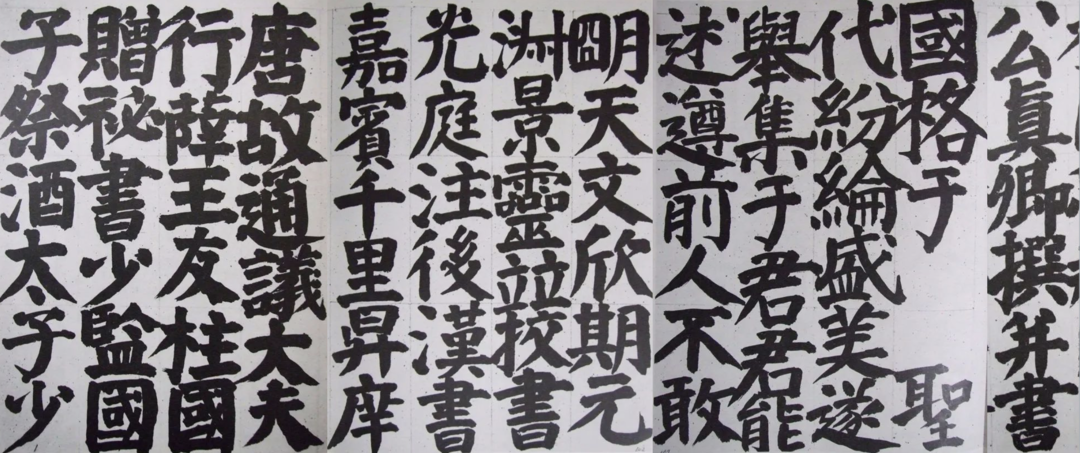 公眞卿撰并書
國格于 聖
代紛綸盛美遂
舉集于君君能
述遵前人不敢
朙天文欣期元
洲景靈竝挍書
光庭注後漢書
嘉賓千里昇庠
唐故通議大夫
行薛王友柱國
贈祕書少監國
子祭酒太子少